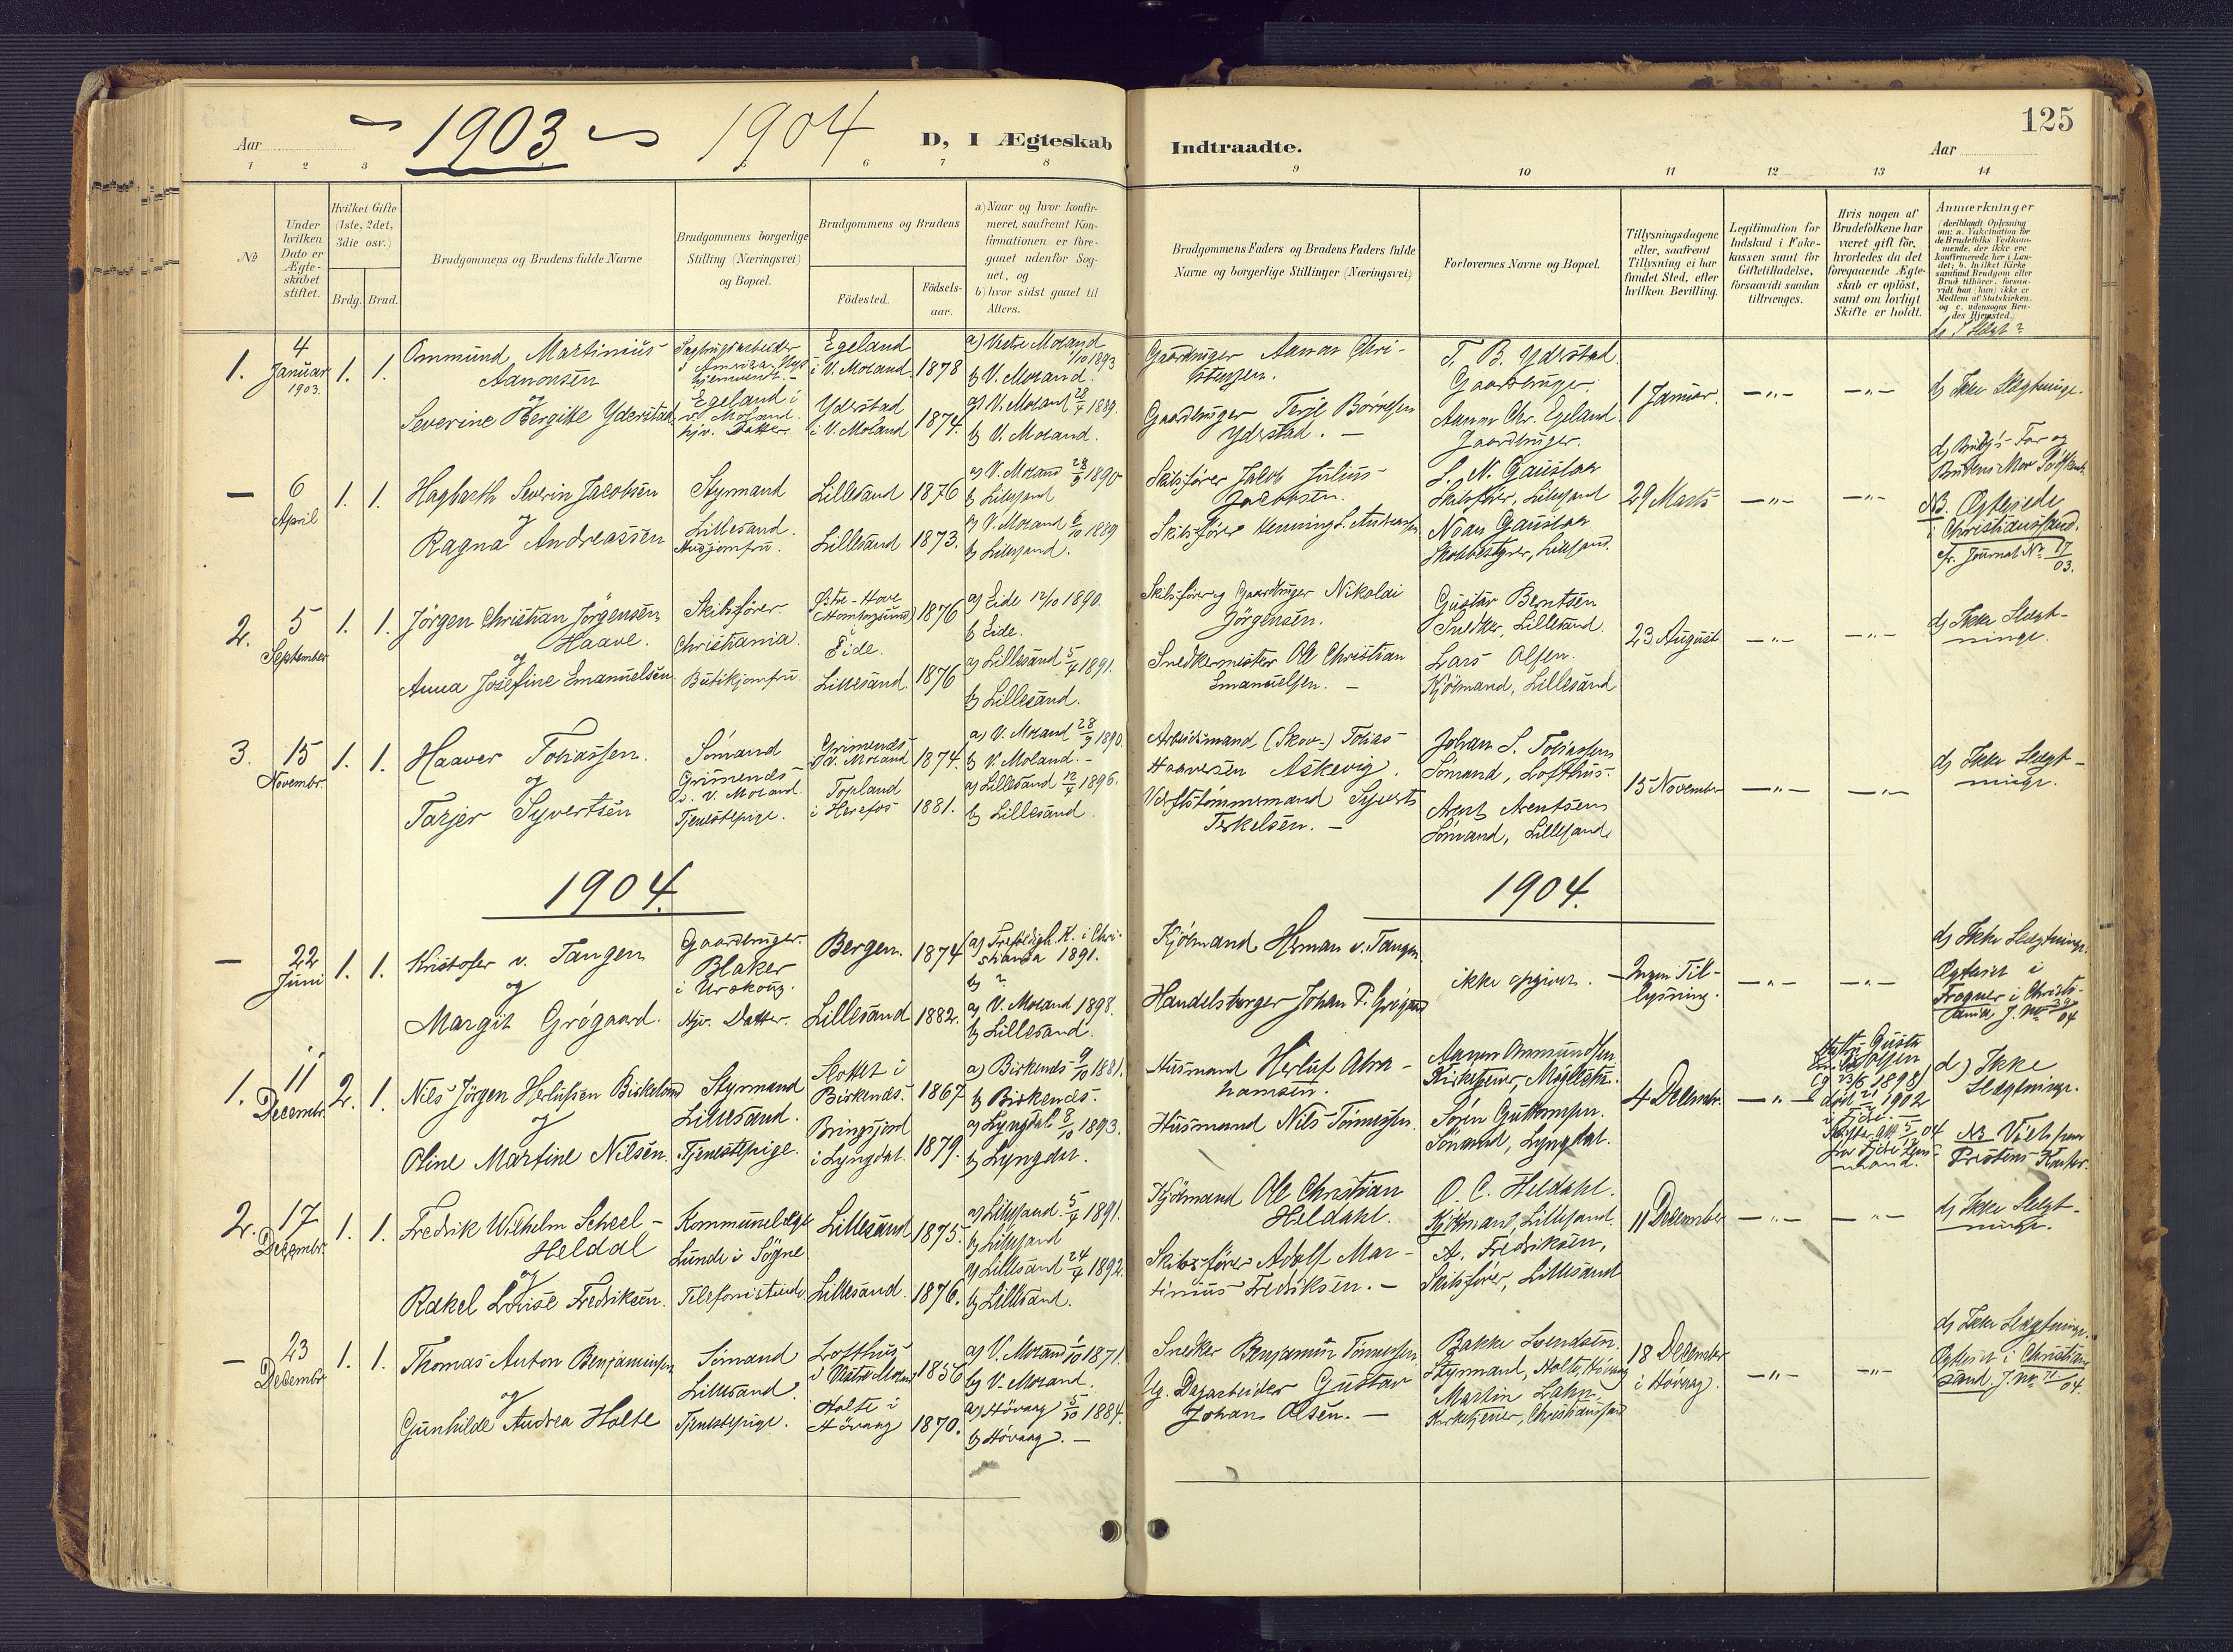 125
1903 1904
Aar
D, I Ægteskab
Indtraadte.
Aar
1 2 3 6 7 8 9 10 11 12 13 14
No
Under hvilken Dato er Ægteskabet stiftet.
Hvilket Gifte (1ste, 2det, 3die osv.)
Brdg. Brud.
Brudgommens og Brudens fulde Navne
Brudgommens borgerlige Stilling (Næringsvei) og Bopæl.
Brudgommens og Brudens
Fødested.
Fødselsaar.
a) Naar og hvor konfirmeret, saafremt Konfirmationen er foregaaet udenfor Sognet, og
b) hvor sidst gaaet til Alters.
Brudgommens Faders og Brudens Faders fulde Navne og borgerlige Stillinger (Næringsvei)
Forlovernes Navne og Bopæl.
Tillysningsdagene eller, saafremt Tillysning ei har fundet Sted, efter hvilken Bevilling.
Legitimation for Indskud i Enkekassen samt for Giftetilladelse, forsaavidt saadan tiltrænges.
Hvis nogen af Brudefolkene har været gift før, hvorledes da det foregaaende Ægteskab er opløst, samt om lovligt Skifte er holdt.
Anmærkninger
(deriblandt Oplysning om: a. Vakcination for de Brudefolks Vedkommende, der ikke ere konfirmerede her i Landet; b. hvilket Kirkesamfund Brudgom eller Brud tilhører, forsaavidt han (hun) ikke er Medlem af Statskirken. og c. udensogns Brudes Hjemsted.)
1.
4 Januar 1903.
1. 1.
Ommund Martinius
Aanonsen
og
Severine Bergitte Yderstad
Sagbrugsarbeider
i Amerika
Egeland i
V. Moland.
hjv. Datter.
Egeland
i V. Moland. 1878
Yderstad
i V. Moland 1874.
a) Vestre Moland 1/10 1893
b) V. Moland.
a) V. Moland 28/4 1889.
b) V. Moland.
Gaardbruger Aanon Chri-
stensen.
Gaardbruger Terje Børresen
Yderstad. —
T. B. Yderstad
Gaardbruger.
Aanon Chr. Egeland
Gaardbruger.
1 Januar.
—„—
—„—
d) Ikke Slegtninge.
—
6 April
1. 1.
Hagbarth Severin Jacobsen
og
Ragna Andreassen
Styrmand
Lillesand.
Husjomfru.
Lillesand 1876
Lillesand 1873.
a) V. Moland 28/9 1890
b) Lillesand
a) V. Moland 6/10 1889
b) Lillesand.
Skibsfører Jakob Julius
Jacobsen.
Skibsfører Henning L. Andreassen
L. N. Gaustad
Skibsfører, Lillesand
Noan Gaustad
Skolebestyrer, Lillesand.
29 Marts
—„—
—„—
d) Brudg's Far og
Brudens Mor Sødskende
NB. Ægteviede
i Christianssand.
cfr. Journal No 17/03.
2.
5 September
1. 1.
Jörgen Christian Jörgensen
Haave.
og
Anna Josefine Emanuelsen
Skibsfører.
Christiania.
Butikjomfru.
Østre-Hove
(Homborgsund) 1876
i Eide.
Lillesand. 1876
a) Eide 12/10 1890.
b) Eide.
a) Lillesand 5/4 1891.
b) Lillesand.
Skibsfører og Gaardbruger Nikolai
Jörgensen.
Snedkermester Ole Christian
Emanuelsen. —
Gustav Berntsen
Snedker, Lillesand.
Lars Olsen.
Kjöbmand, Lillesand
23 August
—„—
—„—
d) Ikke Slegt-
ninge.
3.
15 Novembr.
1. 1.
Haaver Tobiassen.
og
Tarjer Syvertsen
Sømand
Grimenes
i V. Moland.
Tjenestepige.
Grimenes
i V. Moland 1874.
Topland
i Herefos 1881.
a) V. Moland 28/9 1890.
b) V. Moland. —
a) Lillesand 12/4 1896.
b) Lillesand.
Arbeidsmand (Skov-) Tobias
Haaversen Askevig.
Verftstømmermand Syvert
Terkelsen. —
Johan S. Tobiassen
Sømand, Lofthus.
Arent Arentsen
Sømand, Lillesand
15 November
—„—
—„—
d) Ikke Slegt-
ninge.
1904. 1904.
—
22 Juni
1. 1.
Kristofer v. Tangen
og
Margit Grøgaard.
Gaardbruger.
Blaker
i Urskoug.
Hjv. Datter.
Bergen. 1874
Lillesand 1882.
a) Trefoldigh. K. i Chri-
stiania 1891.
b) ?
a) V. Moland 1898.
b) Lillesand.
Kjöbmand Herman v. Tangen
Handelsborger Johan P. Grøgaard
ikke opgivet. —
Ingen Til-
lysning.
—„—
—„—
d) Ikke Slegtninge.
Ægteviet i
Fragner i Christi-
ania,
1.
11 Decembr.
2. 1.
Nils Jörgen Herlufsen Birkeland
og
Oline Martine Nilsen.
Styrmand
Lillesand.
Tjenestepige.
Slottet i
Birkenes. 1867
Bringsjord
i Lyngdal. 1879.
a) Birkenes 9/10 1881.
b) Birkenes.
a) Lyngdal 8/10 1893.
b) Lyngdal.
Husmand Herluf Abra-
hamsen.
Husmand Nils Tønnessen.
Aanon Ommundsen
Kirketjener, Møglestu.
Søren Guttormsen.
Sømand, Lyngdal.
4 Decembr.
—„—
d) Ikke
Slegtninge.
NB Viet
Prestens Kontor.
2.
17 Decembr.
1. 1.
Fredrik Wilhelm Scheel-
Heldal
og
Rakel Lovise Fredriksen.
Kommunelæge
Lunde i Søgne
Telefonistinde
Lillesand 1875.
Lillesand. 1876.
a) Lillesand. 5/4 1891.
b) Lillesand
a) Lillesand 24/4 1892.
b) Lillesand.
Kjöbmand Ole Christian
Heldahl.
Skibsfører Adolf Mar-
tinius Fredriksen. —
O. C. Heldahl.
Kjöbmand, Lillesand.
A. Fredriksen,
Skibsfører, Lillesand
11 December
—„—
—„—
d) Ikke Slegt-
ninge.
—
23 Decembr.
1. 1.
Thomas Anton Benjaminsen
og
Gunhilde Andrea Holte
Sømand
Lillesand.
Tjenestepige.
Lofthus
i Vestre Moland 1856
Holte i
Høvaag 1870.
a) V. Moland 1/10 1871.
b) V. Moland.
a) Høvaag 5/10 1884.
b) Høvaag. —
Snedker Benjamin Tønnessen
Ug. Dagarbeider Gustav
Johan Olsen. —
Bakke Svendsen.
Styrmand, Holte, Høvaag
Martin Lahn.
Kirketjener, Christianssand
18 December
i Høvaag.
—„—
—„—
d) Ikke Slegtninge.
Ægteviet i Christian-
sand.